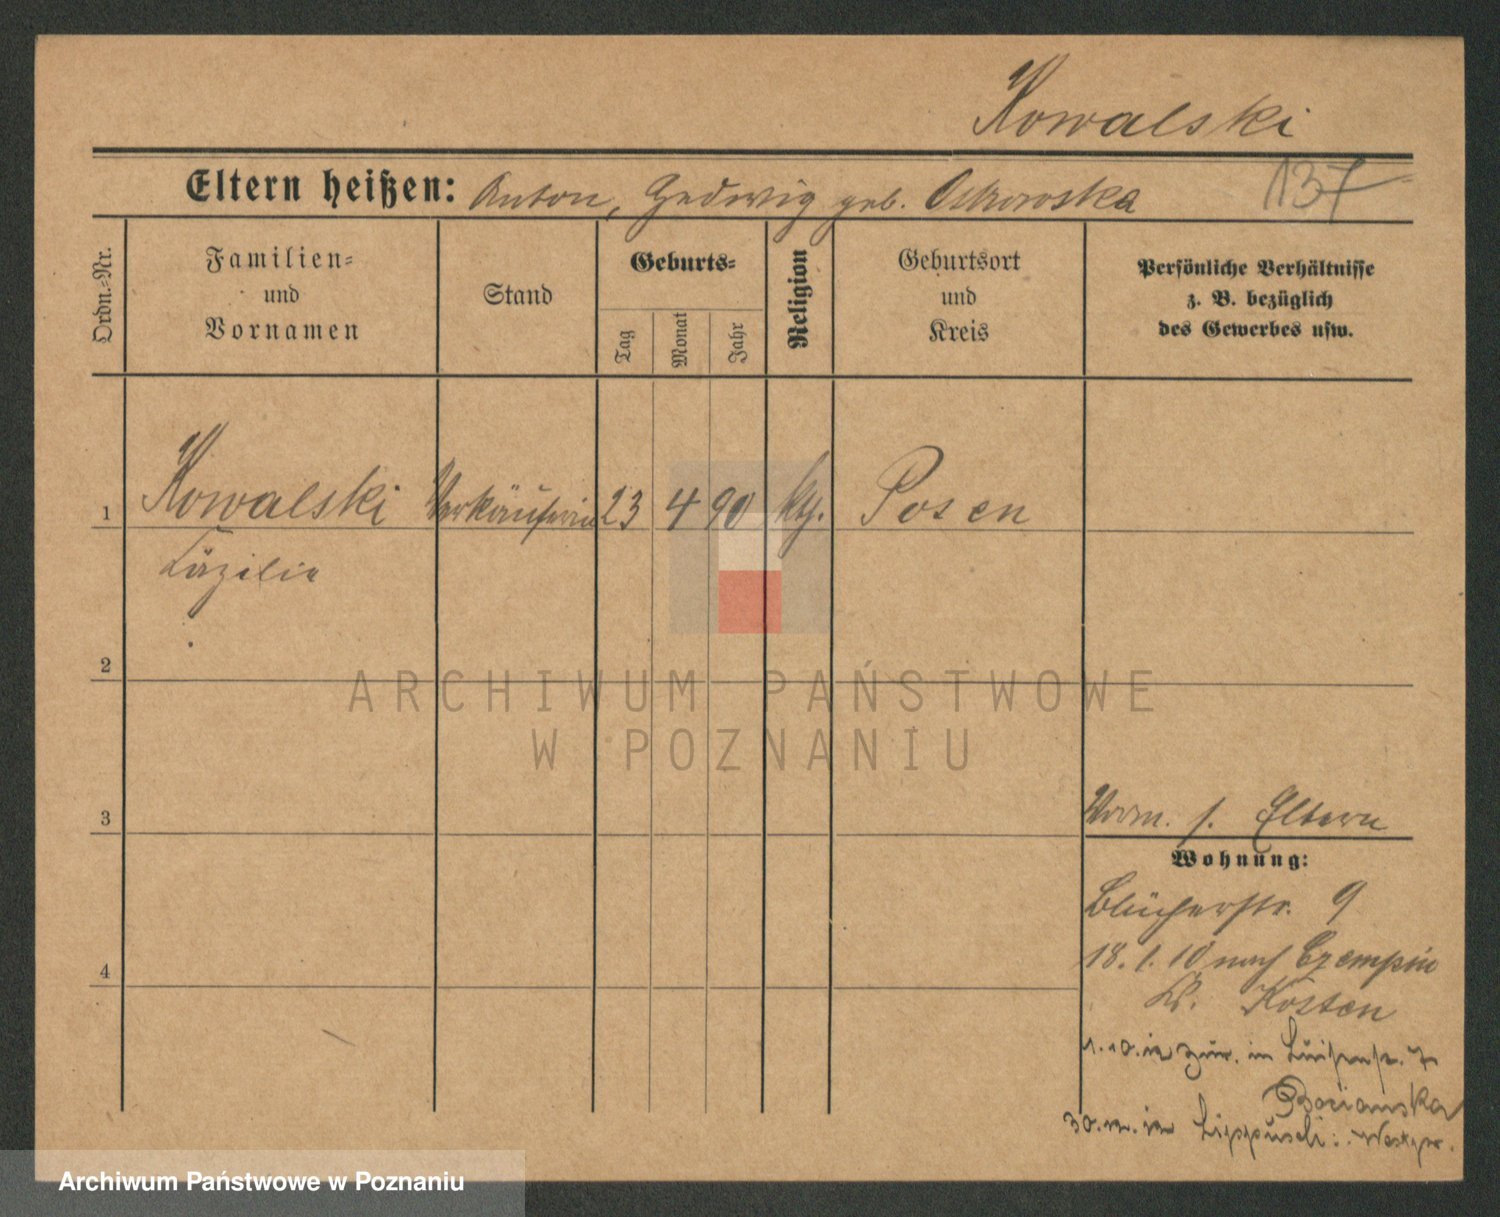 Kowalski
137
Eltern heißen: Anton, Hedwig geb. Ostrowska
Ordn.-Nr.
Familien-
und
Vornamen
Stand
Geburts-
Tag
Monat
Jahr
Religion
Geburtsort
und
Kreis
Persönliche Verhältnisse
z. B. bezüglich
des Gewerbes usw.
1 Kowalski Verkäuferin 23 4 90 kth. Posen
Cäzilie
2
ARCHIWUM PAŃSTWOWE
W POZNANIU
3
Vorm. s. Eltern
Wohnung:
Blücherstr. 9
18. 1. 10 nach Czempin
Kr. Kosten
4
1.10.12 zur. in Luisenstr. 7
Bocianska
30.12.12 Westpr.
Archiwum Państwowe w Poznaniu